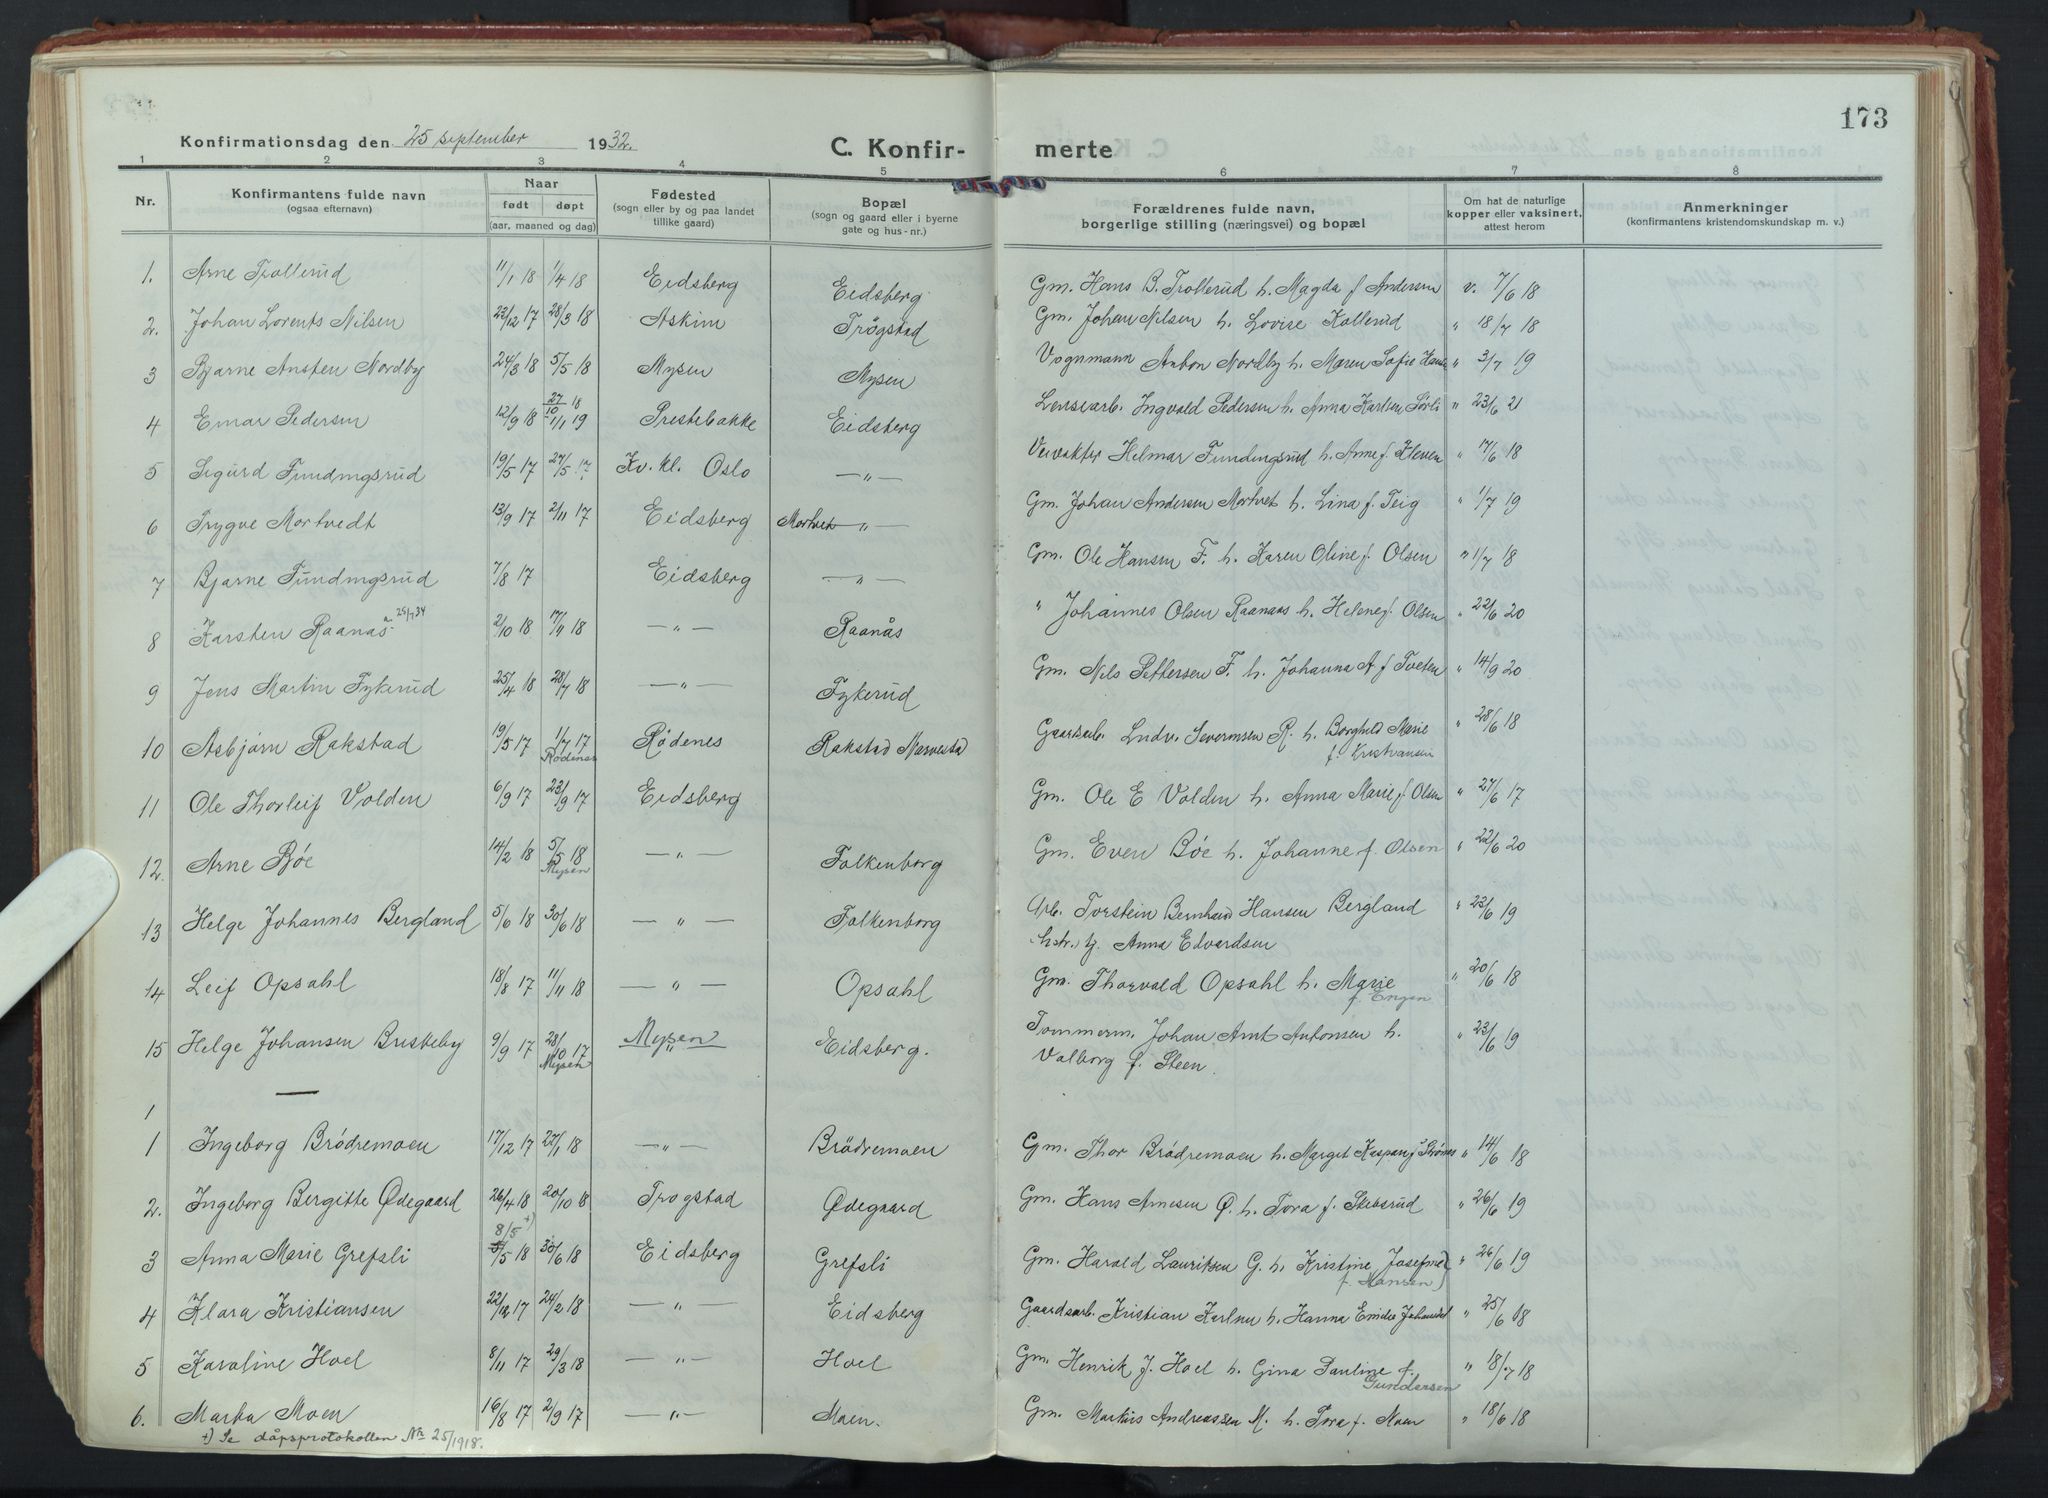 173
Konfirmationsdag den 25 september 1932. C. Konfir- merte
1 2 3 4 5 6 7 8
Nr. Konfirmantens fulde navn (ogsaa efternavn) Naar født døpt (aar, maaned og dag) Fødested (sogn eller by og paa landet tillike gaard) Bopæl (sogn og gaard eller i byerne gate og hus-nr.) Forældrenes fulde navn, borgerlige stilling (næringsvei) og bopæl Om hat de naturlige kopper eller vaksinert, attest herom Anmerkninger (konfirmantens kristendomskundskap m. v.)
1. Arne Trollerud 11/1 18 1/4 18 Eidsberg Eidsberg Gm. Hans B. Trollerud h. Magda f Andersen v. 7/6 18
2. Johan Lorents Nilsen 23/12 17 28/3 18 Askim Trøgstad Gm. Johan Nilsen h. Lovise Kollerud " 18/7 18
3 Bjarne Ansten Nordby 24/3 18 5/5 18 Mysen Mysen Vognmann Anton Nordby h. Maren Sofie Hans " 3/7 19
4 Einar Pedersen 12/9 18 27/10 18 1/1 19 Prestebakke Eidsberg Lensearb. Ingvald Pedersen h. Anna Karlsen Sørli " 23/6 21
5 Sigurd Fundingsrud 19/5 17 27/5 17 Kv. kl. Oslo — " — Veivokter Helmar Fundingsrud h. Anne f. Kleven " 17/6 18
6 Trygve Mortvedt 13/9 17 2/11 17 Eidsberg Mortvet " — Gm. Johan Andersen Mortvet h. Lina f. Teig " 1/7 19
7 Bjarne Fundingsrud 7/8 17 Eidsberg — " — Gm. Ole Hansen F. h. Karen Oline f. Olsen " 1/7 18
8 Karsten Raanås 25/7 34 2/10 18 17/11 18 — " — Raanås " Johannes Olsen Raanaas h. Helene f. Olsen " 22/6 20
9 Jens Martin Fykerud 25/4 18 28/7 18 — " — Fykerud Gm. Nils Pettersen F. h. Johanna A f Tveten " 14/9 20
10 Asbjørn Rakstad 19/5 17 1/7 17 Rödenes Rödenes Rakstad Gaardsarb. Ludv. Severinsen R. h. Borghild Marie " 28/6 18
f. Kristiansen
11 Ole Thorleif Volden 6/9 17 23/9 17 Eidsberg Gm. Ole E Volden h. Anna Marie f Olsen " 27/6 17
12. Arne Bøe 14/2 18 5/5 18 Mysen — " — Folkenborg Gm. Even Bøe h. Johanne f. Olsen " 22/6 20
13 Helge Johannes Bergland 5/6 18 30/6 18 — " — Folkenborg Arb. Torstein Bernhard Hansen Bergland " 23/6 19
hstr. tj. Anna Edvardsen
14 Leif Opsahl 18/8 17 11/11 18 — " — Opsahl Gm. Thorvald Opsahl h. Marie " 20/6 18
f. Engen
15 Helge Johansen Briskeby 9/9 17 28/10 17 Mysen Mysen Eidsberg. Tommerm. Johan Arnt Antonsen h. " 23/6 19
Valborg f. Steen.
1
1 Ingeborg Brödremoen 17/12 17 27/1 18 — " — Brödremoen Gm. Thor Brödremoen h. Margit Kaspara f " 14/6 18
2. Ingeborg Bergitte Ødegaard 26/4 18 20/10 18 Trøgstad Ødegaard Gm. Hans Arnesen Ø. h. Tora f. Skibsrud " 26/6 19
8/5 +)
3 Anna Marie Grefsli 5/5 18 30/6 18 Eidsberg Grefsli Gm. Harald Lauritsen G. h. Kristine Josefine " 26/6 19
f. Hansen
4 Klara Kristiansen 22/12 17 24/2 18 — " — Eidsberg Gaardsarb. Kristian Karlsen h. Hanna Emilie " 25/6 18
5 Karoline Hoel 8/11 17 29/3 18 — " — Hoel Gm. Henrik J. Hoel h. Gina Pauline f. " 18/7 18
Gundersen
6. Marta Moen 16/8 17 2/9 17 — " — Moen. Gm. Markus Andreassen M. h. Tora f. Moen " 18/6 18
+) Se dåpsprotokollen Nr. 25/1918.